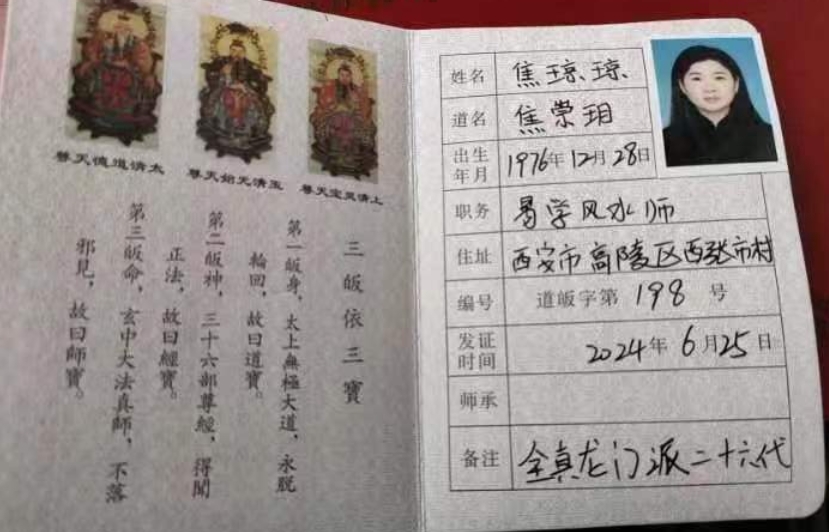 太清道德天尊
玉清元始天尊
上清灵宝天尊
三皈依三寶
第一皈身，太上無極大道，永脱
輪回，故曰道寶。
第二皈神，三十六部尊經，得聞
正法，故曰經寶。
第三皈命，玄中大法真師，不落
邪見，故曰師寶。
姓名 焦琼琼
道名 焦崇玥
出生年月 1976年12月28日
职务 易学风水师
住址 西安市高陵区西张市村
编号 道皈字第 198 号
发证时间 2024年6月25日
师承
备注 全真龙门派二十六代